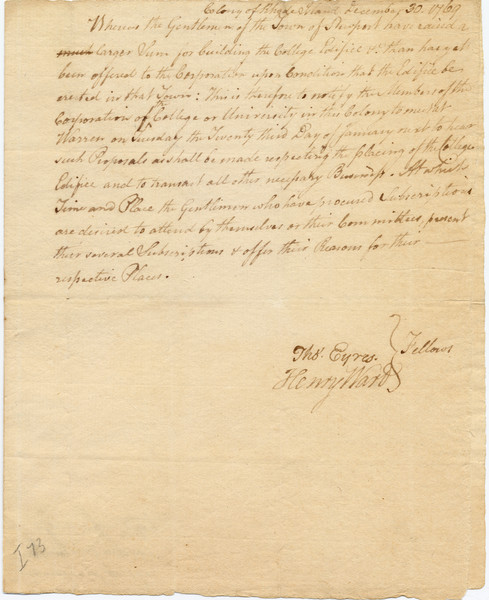 Colony of Rhode Island December 30. 1769
Whereas the Gentlemen of the Town of Newport have raised a
much larger Sum for building the College Edifice &c than has yet
been offered to the Corporation upon Condition that the Edifice be
erected in that Town: This is therefore to notify the Members of the
Corporation of the College or University in this Colony to meet at
Warren on Tuesday the Twenty third Day of January next to hear
such Proposals as shall be made respecting the placing of the College
Edifice and to transact all other necessary Business. At which
Time and Place the Gentlemen who have procured Subscriptions
are desired to attend by themselves or their Committees, present
their several Subscriptions & offer their Reasons for their
respective Places.
Thos. Eyres. } Fellows
Henry Ward
I 73